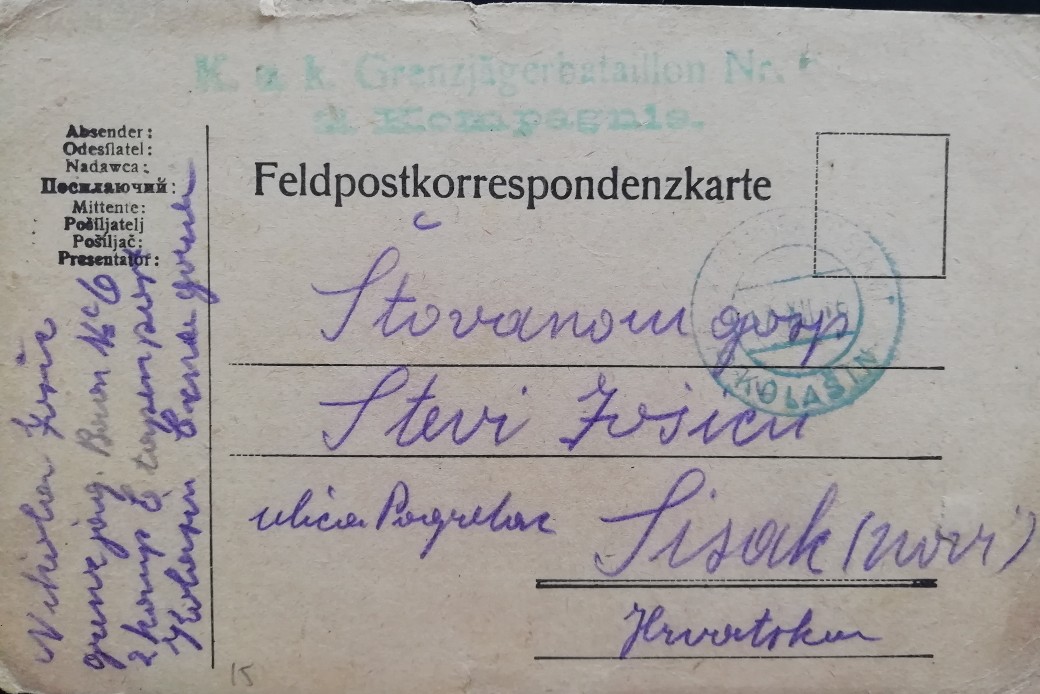 K. u. k. Grenzjägerbataillon Nr.
2 Kompagnie.
Absender:
Odesílatel:
Nadawca:
Посилаючий:
Mittente:
Pošiljatelj
Pošiljač:
Presentator:
Feldpostkorrespondenzkarte
KOLAŠIN
Štovanom gosp
Stevi Jošicu
ulica Pogrelac
Sisak (novi)
Hrvatska
Nikola Jošic
grenz jäg. Baon № 6
2 komp
Kolašin Crna gora
15